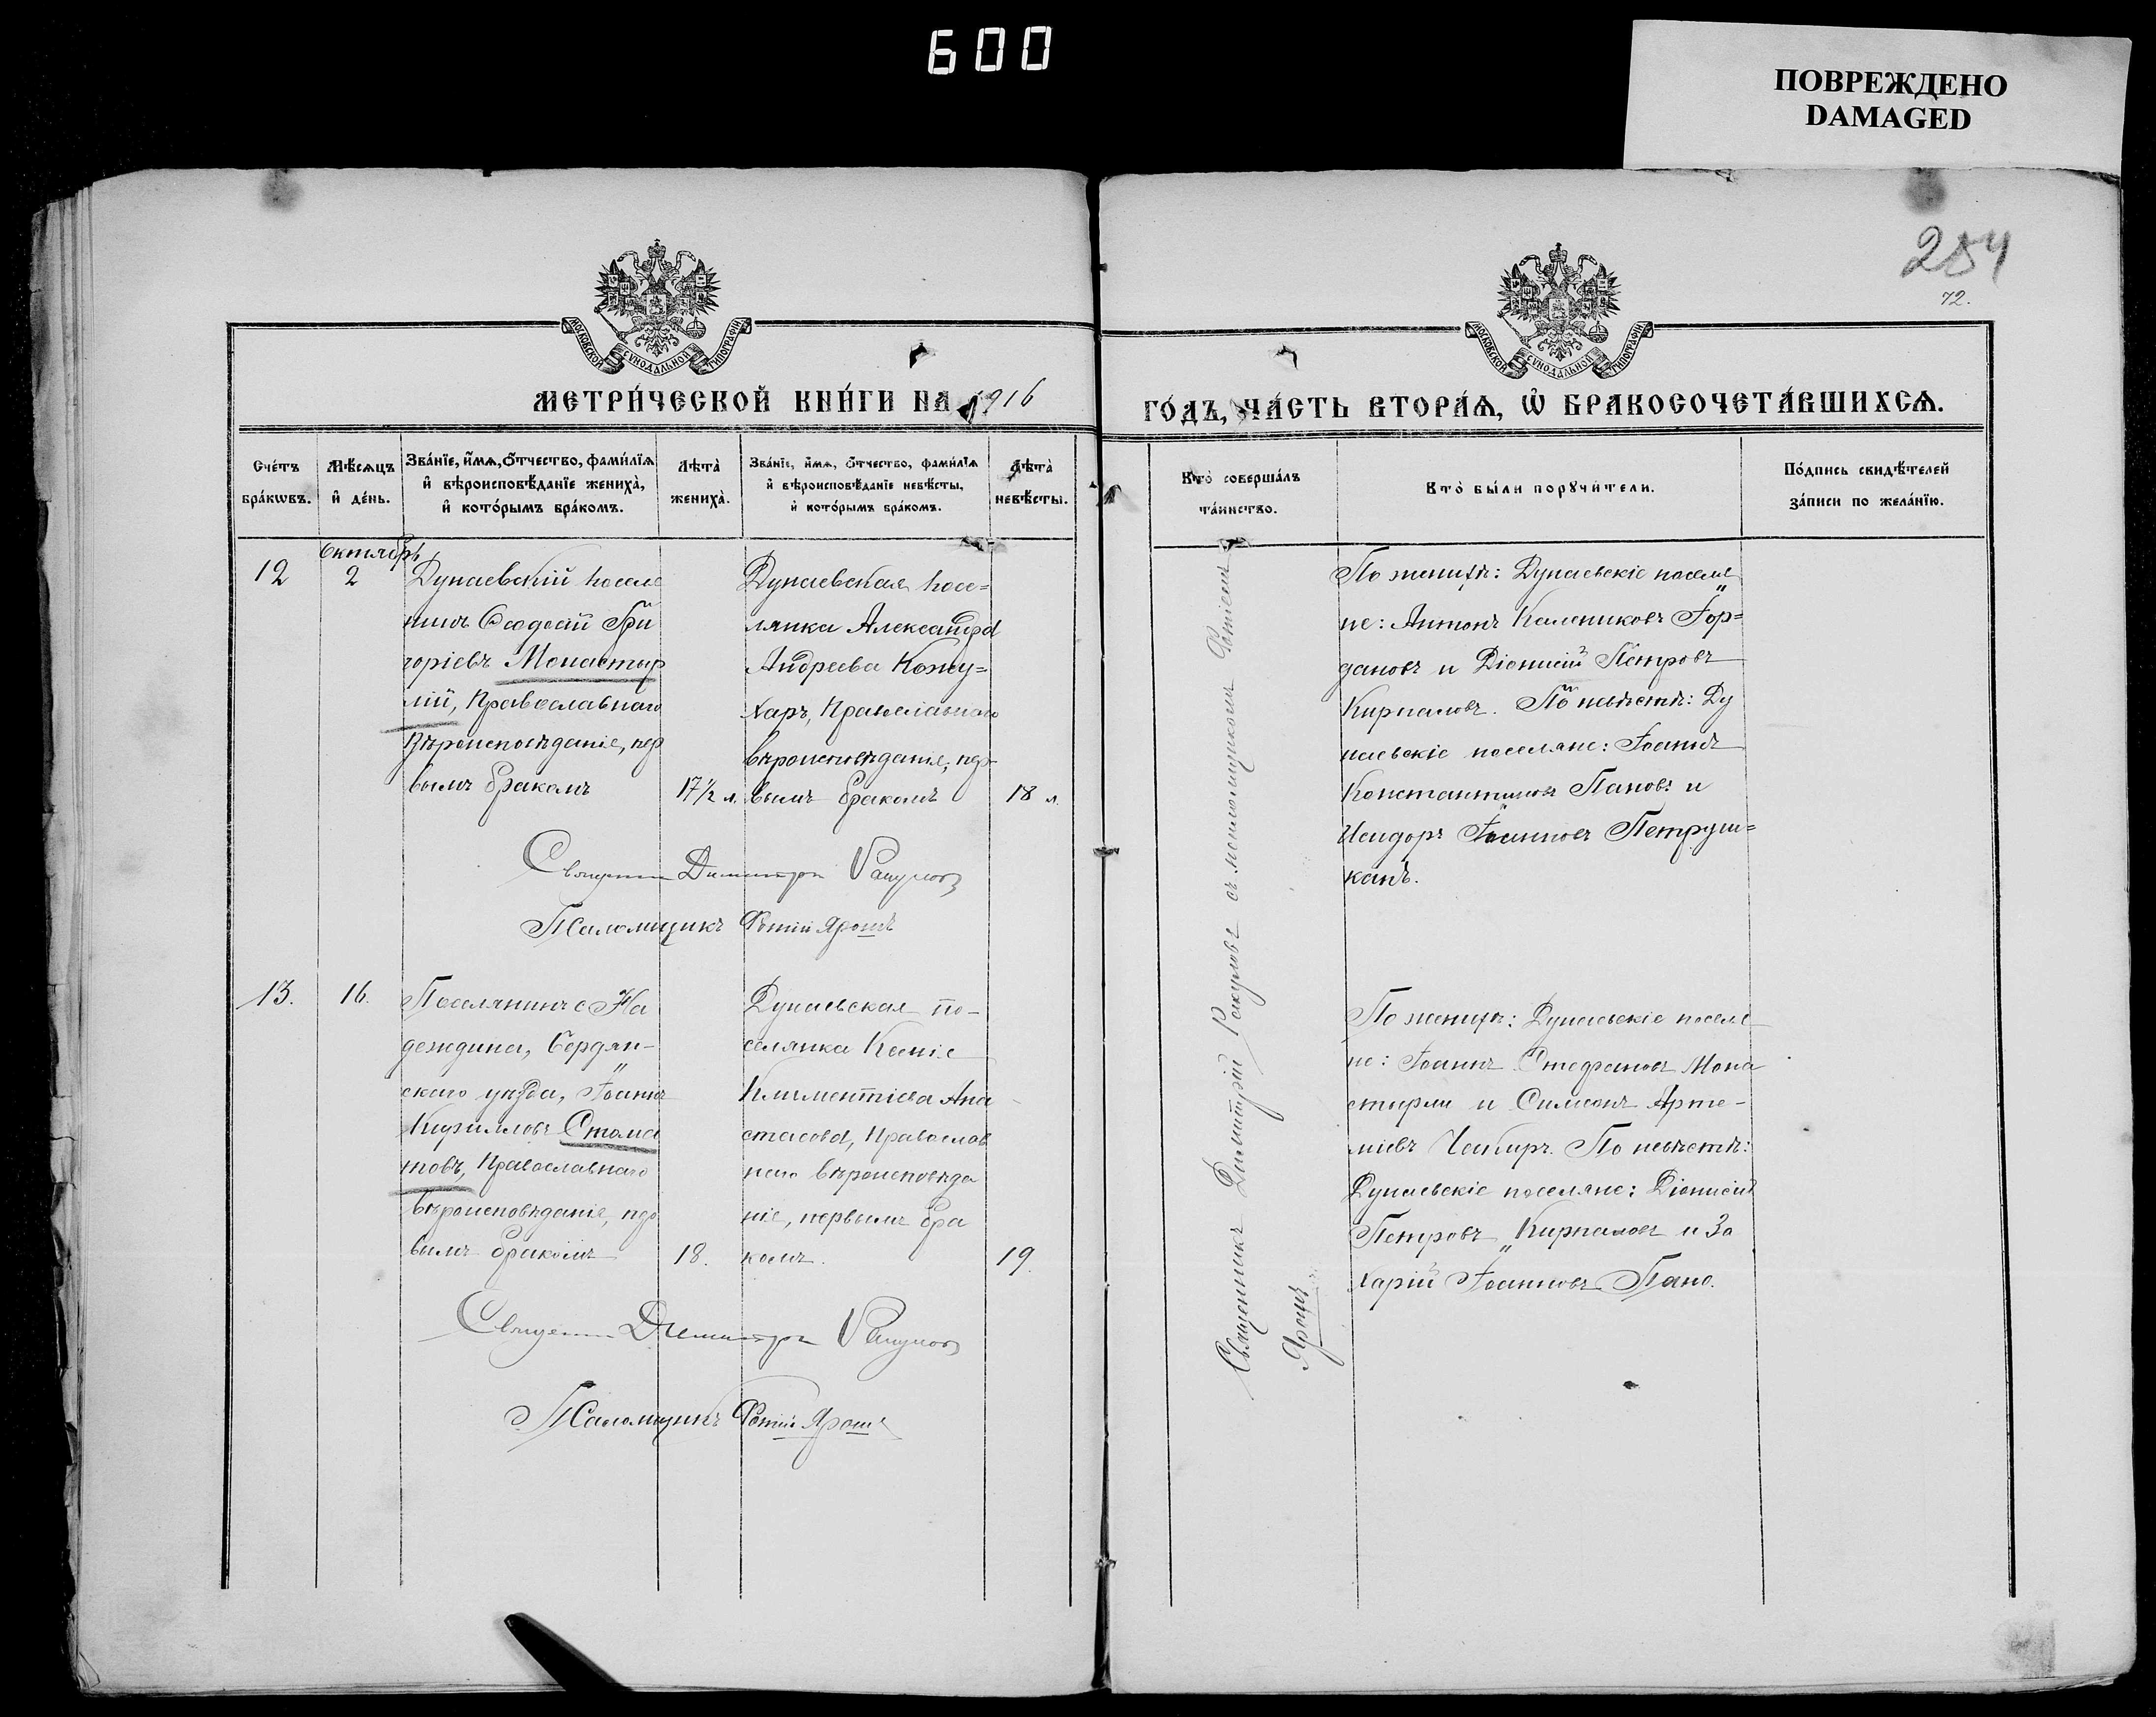 600
ПОВРЕЖДЕНО
DAMAGED
254
72.
МОСКОВСКОЙ СУНОДАЛЬНОЙ ТИПОГРАФІИ
МОСКОВСКОЙ СУНОДАЛЬНОЙ ТИПОГРАФІИ
МЕТРИ́ЧЕСКОЙ КНИ́ГИ НА 1916
ГО́ДЪ, ЧА́СТЬ ВТОРА́Ѧ, Ѡ БРАКОСОЧЕТА́ВШИХСѦ.
Сче́тъ
бра́кѡвъ.
Мѣ́сѧцъ
и де́нь.
Зва́нїе, и́мѧ, ѻ́тчество, фами́лїѧ
и вѣроисповѣ́данїе жениха̀,
и кото́рымъ бра́комъ.
Лѣта̀
жениха̀.
Зва́нїе, и́мѧ, ѻ́тчество, фами́лїѧ
и вѣроисповѣ́данїе невѣ́сты,
и кото́рымъ бра́комъ.
Лѣта̀
невѣ́сты.
Кто̀ соверша́лъ
та́инство.
Кто̀ бы́ли порꙋчи́тели.
По́дпись свидѣ́телей
за́писи по жела́нїю.
12
Октябрь
2
Дунаевскій поселя
нинъ Ѳеодосій Гри
горіевъ Монастыр
лій, Православнаго
Вѣроисповѣданіе, пер
вымъ бракомъ
17 1/2 л.
Дунаевская посе=
лянка Александра
Андреева Кожу=
харъ, Православнаго
вѣроисповѣданіе, пер-
вымъ бракомъ
18 л.
По женихѣ: Дунаевскіе поселя
не: Антонъ Калениковъ Іор=
дановъ и Діонисій Петровъ
Кирпаловъ. По невѣстѣ: Ду
наевскіе поселяне: Іоаннъ
Константиновъ Пановъ и
Исидоръ Іоанновъ Петруш=
канъ.
Священникъ Димитрій Ракуловъ
Псаломщикъ Фотій Ярошъ
13.
16.
Поселянинъ с На
деждина, Бердян-
скаго уѣзда, Іоаннъ
Кирилловъ Стома
товъ, Православнаго
Вѣроисповѣданіе, пер
вымъ бракомъ
18.
Дунаевская по-
селянка Ксенія
Климентіева Ана
стасова, Православ
наго вѣроисповѣда
ніе, первымъ бра
комъ.
19.
По женихѣ: Дунаевскіе поселя
не: Іоаннъ Стефановъ Мона
стырли и Симеонъ Арте-
міевъ Чебиръ. По невѣстѣ:
Дунаевскіе поселяне: Діонисій
Петровъ Кирпаловъ и За
харій Іоанновъ Пано.
Священникъ Димитрій Ракуловъ
Псаломщикъ Фотій Ярошъ
Священникъ Димитрій Ракуловъ съ псаломщикомъ Фотіемъ
Ярошъ.